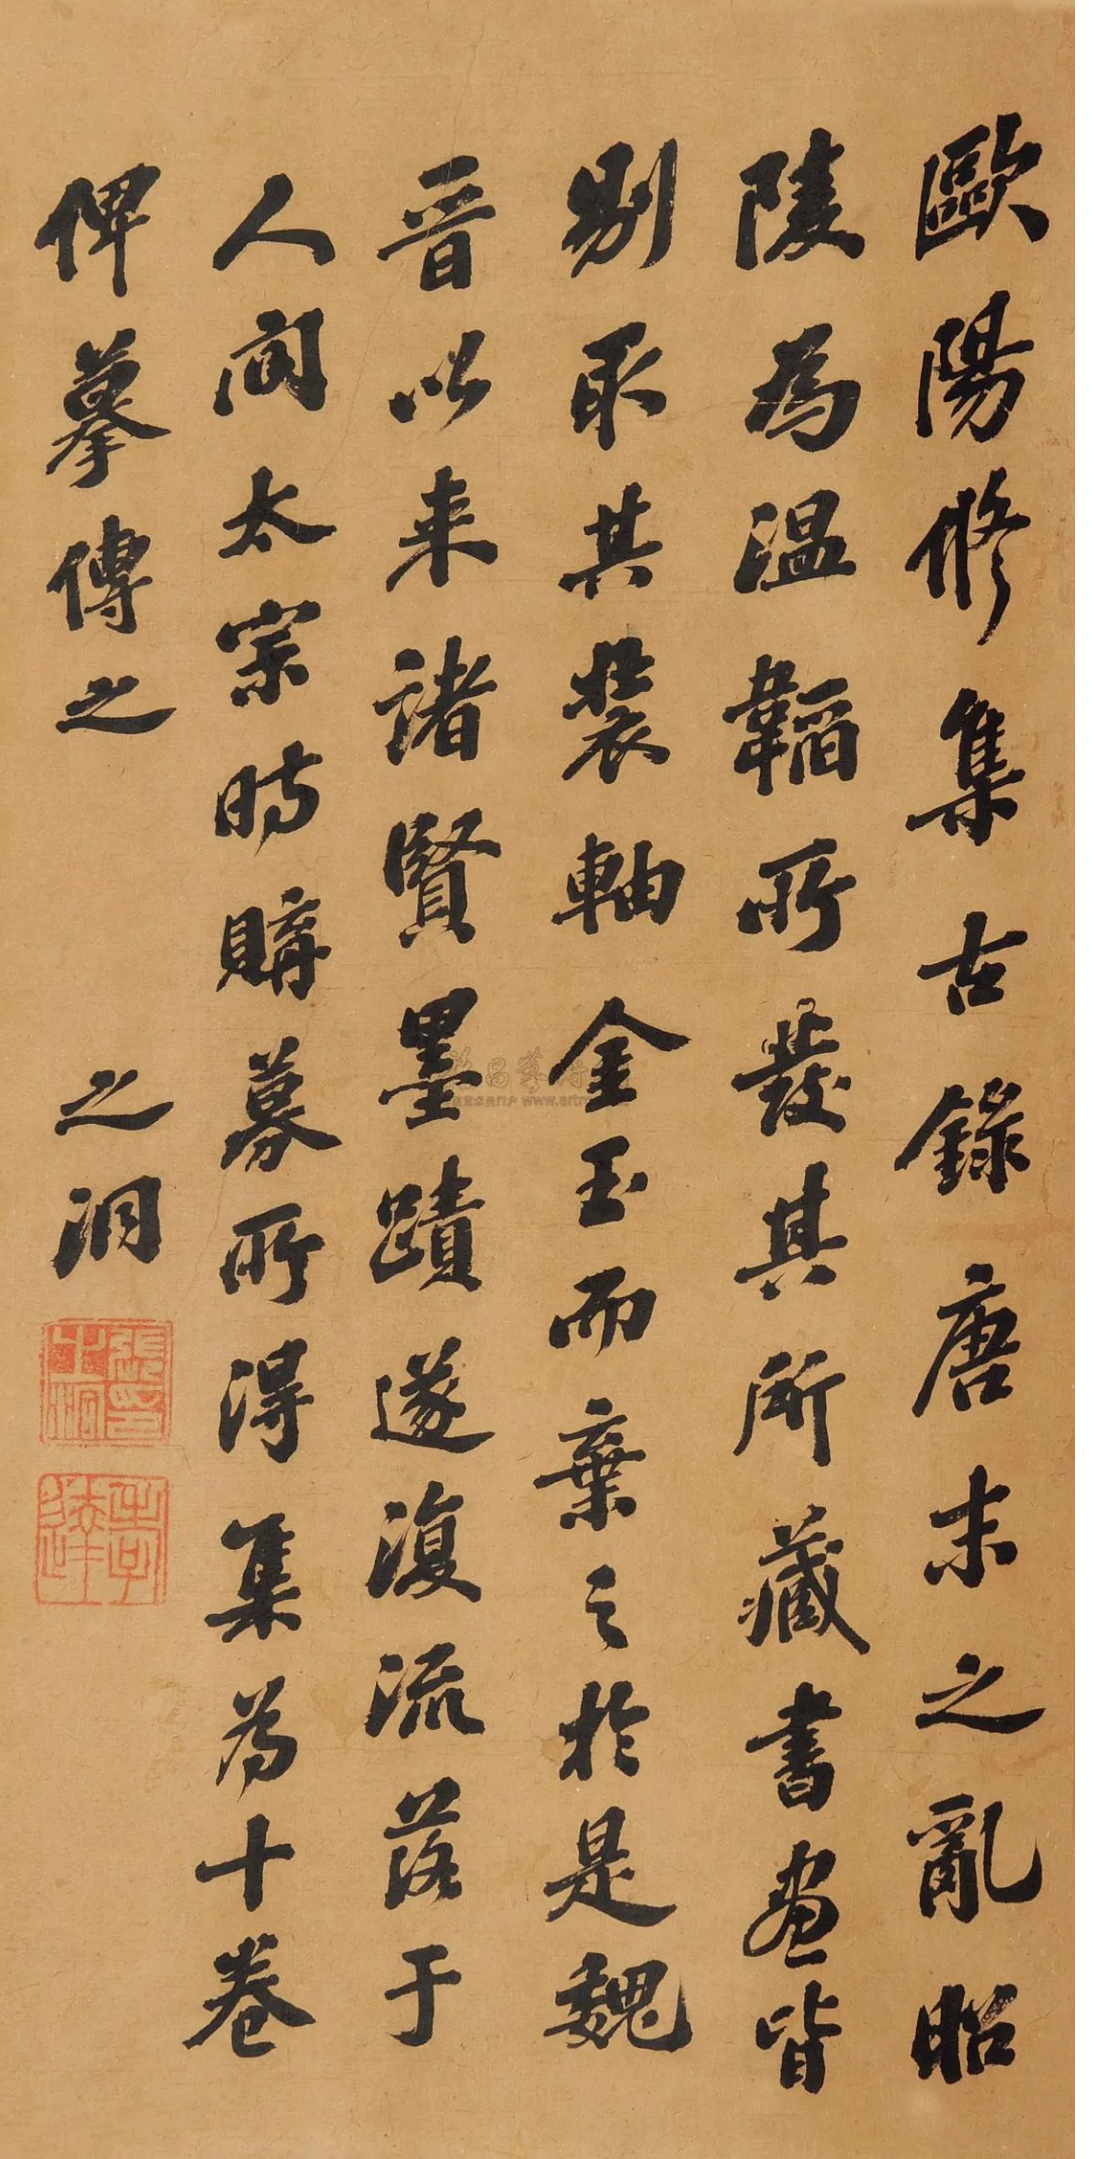 歐陽脩集古錄唐末之亂昭
陵為溫韜所發其所藏書畫皆
剔取其裝軸金玉而棄之於是魏
晉以来諸賢墨蹟遂復流落于
人間太宗時購募所得集為十卷
俾摹傳之
之洞
張之洞印
孝達